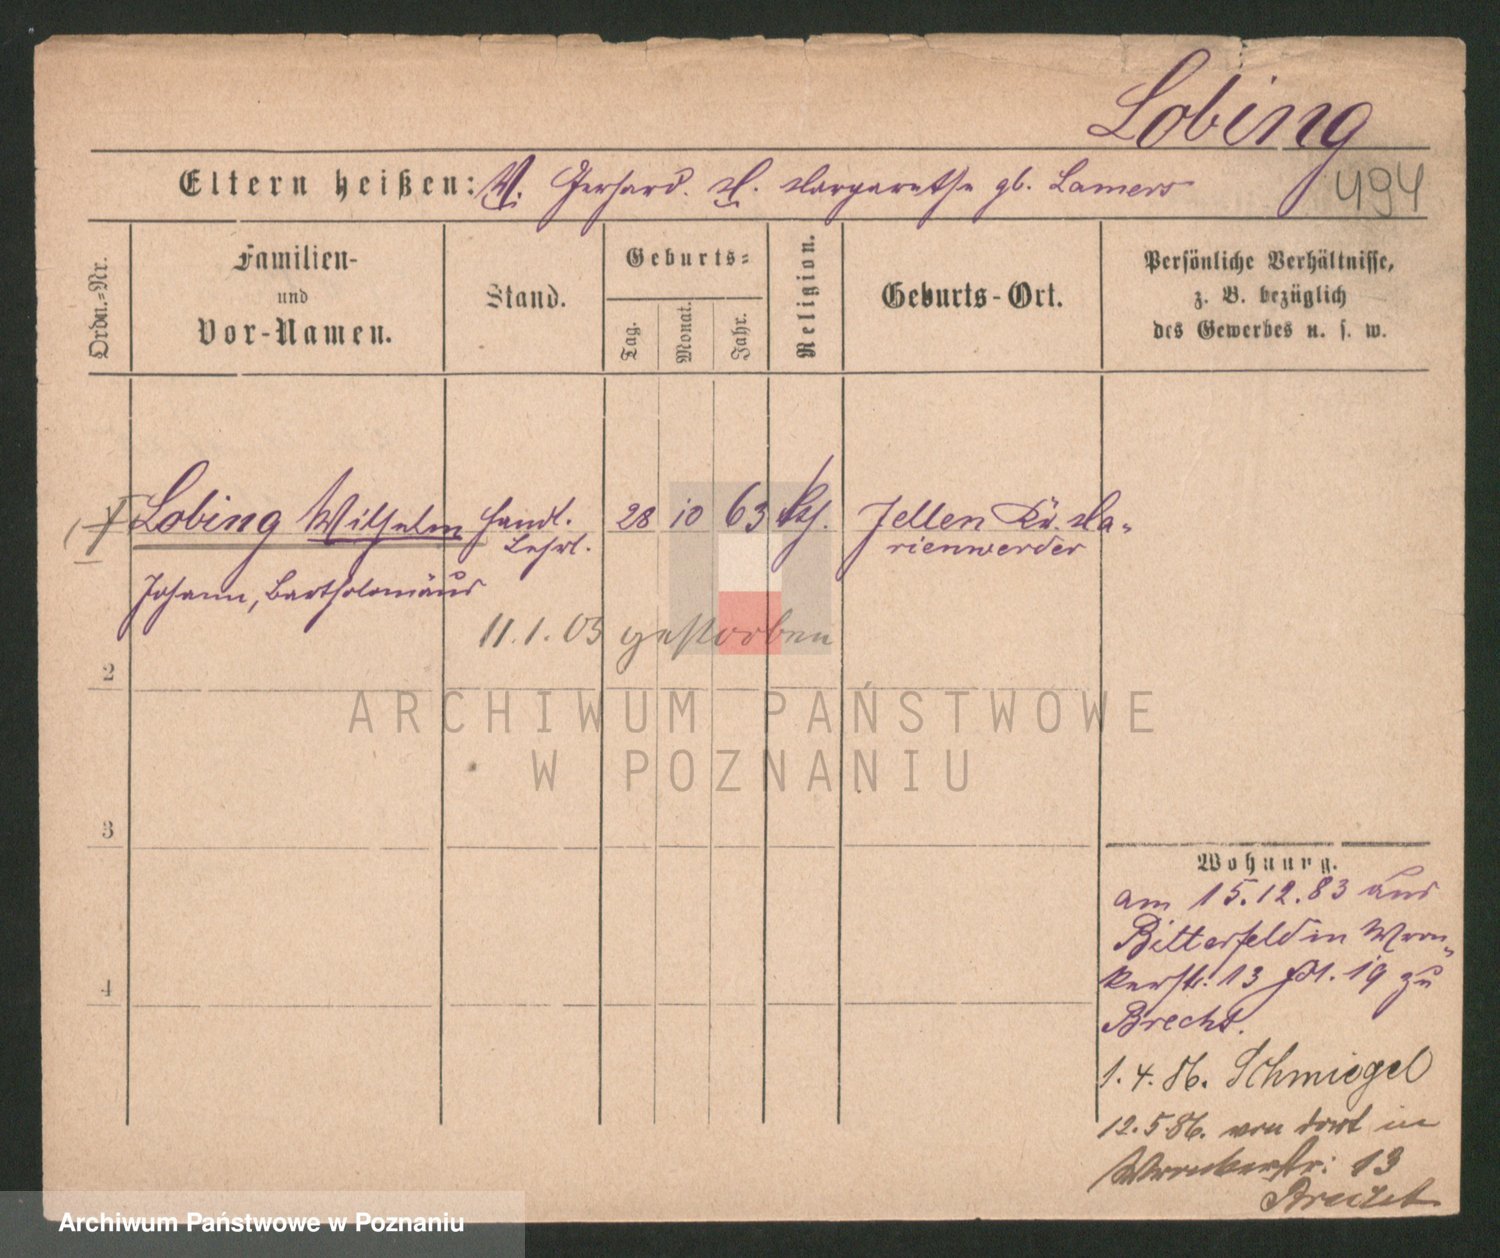 Lobing
494
Eltern heißen: V. Gerhard. M. Margarethe gb. Lamers
Ordn.-Nr.
Familien-
und
Vor-Namen.
Stand.
Geburts-
Tag.
Monat.
Jahr.
Religion.
Geburts-Ort.
Persönliche Verhältnisse,
z. B. bezüglich
des Gewerbes u. s. w.
Lobing Wilhelm Handl. 28 10 63 Jellen Kr. Ma-
Lehrl. rienwerder
Johann, Bartholomäus
11.1.03 gestorben
2
3
4
Wohnung.
am 15.12.83 aus
Bitterfeld in Wron-
kerstr. 13 19 zu
Brecht.
1.4.86. Schmiegel
12.5.86. von dort in
Wronkerstr. 13
Brecht
ARCHIWUM PAŃSTWOWE
W POZNANIU
Archiwum Państwowe w Poznaniu